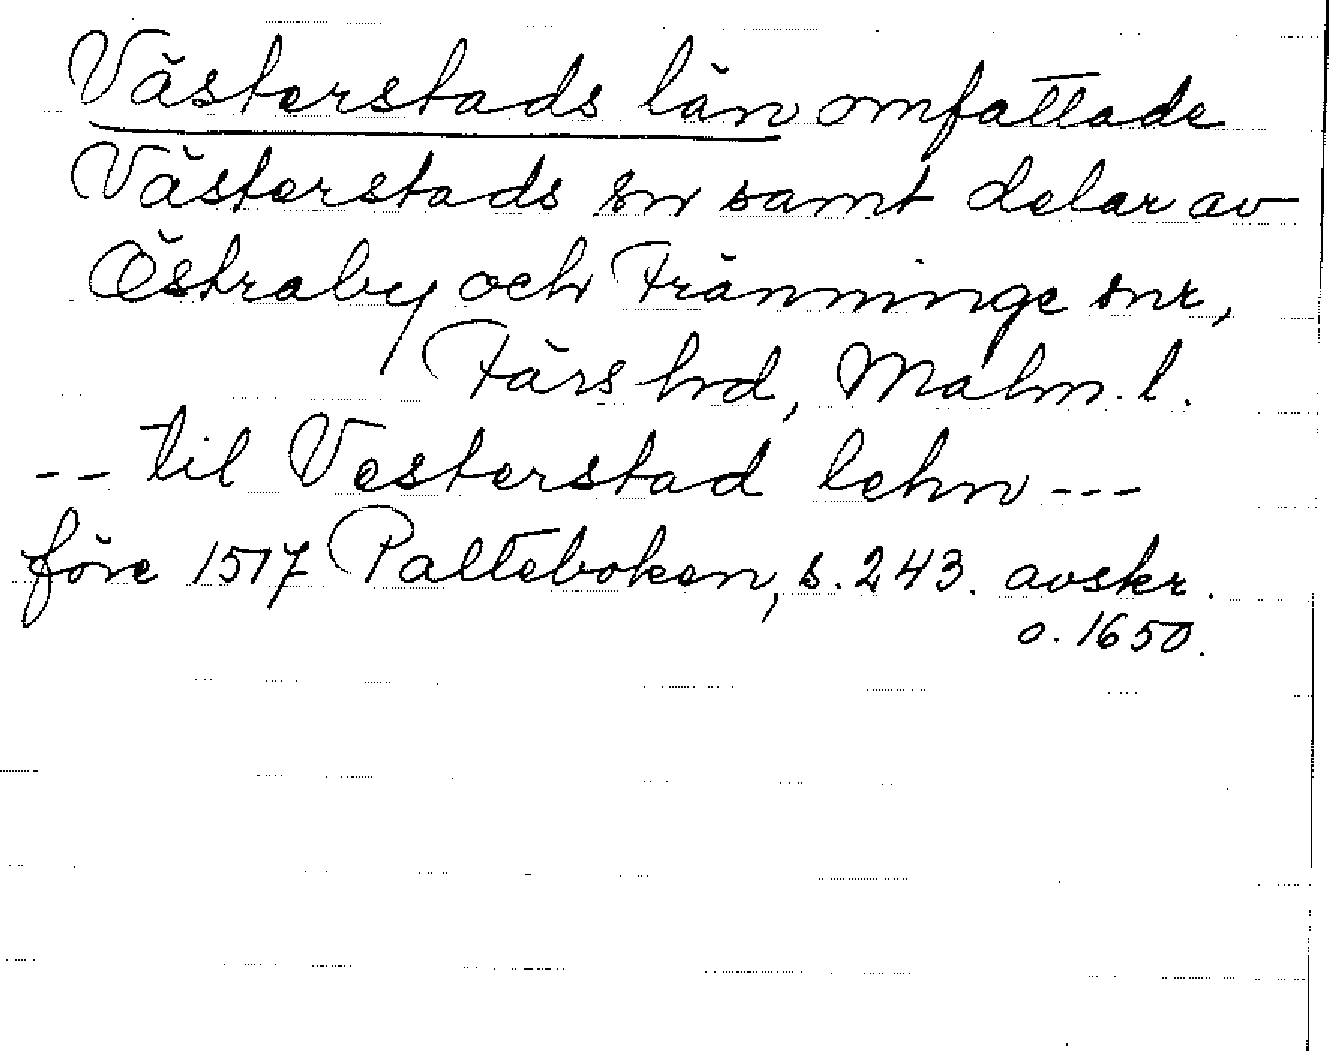 Västerstads län omfattade
Västerstads sn samt delar av
Östraby och Fränninge snr,
Färs hd, Malm. l.
-- til Vesterstad lehn ---
före 1517 Palteboken, s. 243. avskr.
o. 1650.